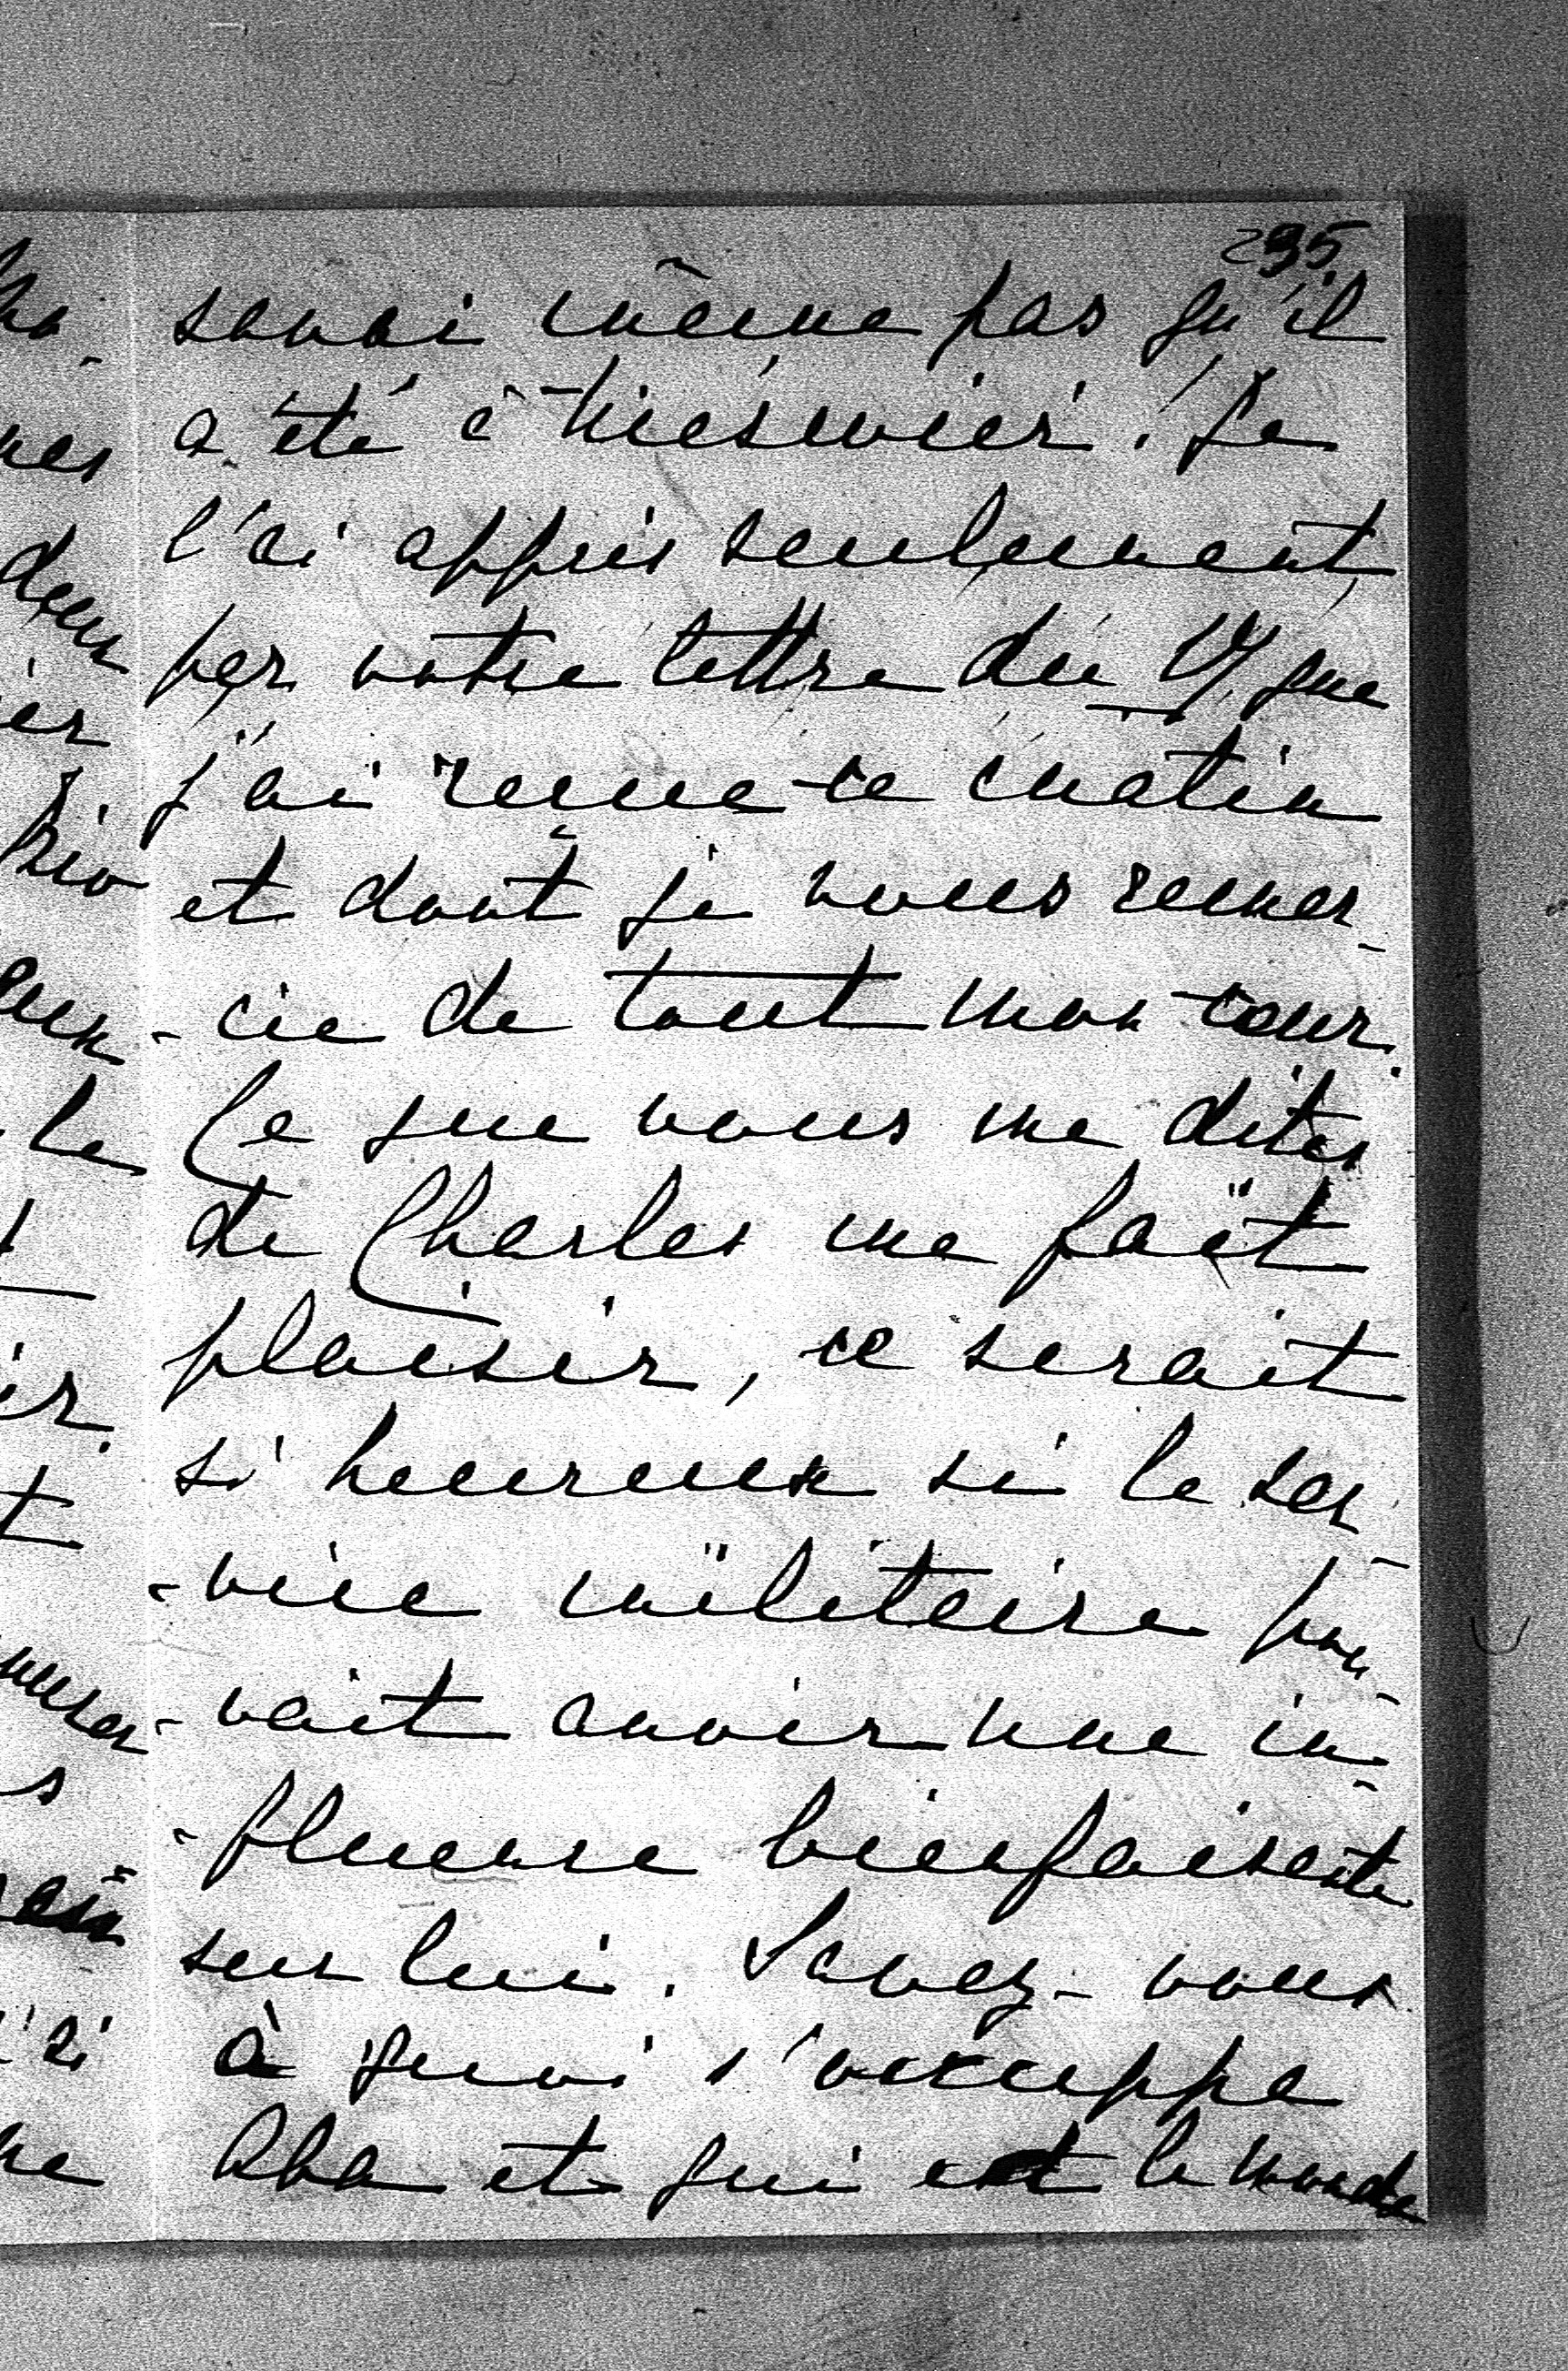 295
savai même pas qu'il
a été à Miesmier! Je
l'ai appris seulement
par votre lettre du 17 que
j'ai reçue ce matin
et dont je vous remer-
-cie de tout mon cœur.
Ce que vous me dites
de Charles me fait
plaisir, ce serait
si heureux si le ser-
-vice militaire pou-
-vait avoir une in-
-fluence bienfaisante
sur lui. Savez-vous
à quoi s'occuppe
Aba et qui est le monde